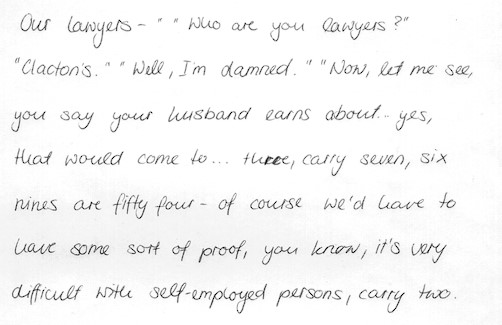 Our lawyers - " " Who are you lawyers ? "
" Clacton's . " " Well , I'm damned . " " Now , let me see ,
you say your husband earns about .. yes ,
that would come to ... three , carry seven , six
nines are fifty four - of course we'd have to
have some sort of proof , you know , it's very
difficult with self-employed persons , carry two .